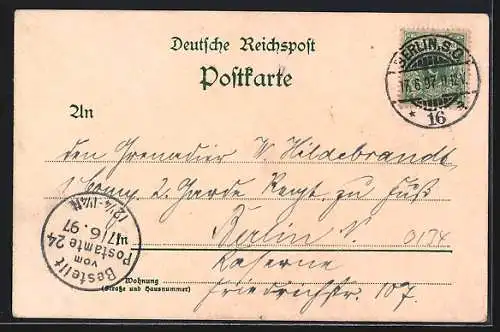 Deutsche Reichspost
Postkarte
BERLIN, S.O.
17.6.97. 11-12V.
* 16 a.
An
den Grenadier W. Hildebrandt
1 Comp. 2. Garde Regt. zu Fuß
in Berlin N.
Kaserne
Wohnung
(Straße und Hausnummer)
Friedrichstr. 107.
Bestellt
vom
Postamte 24
17/6.97
12¼-1¼N